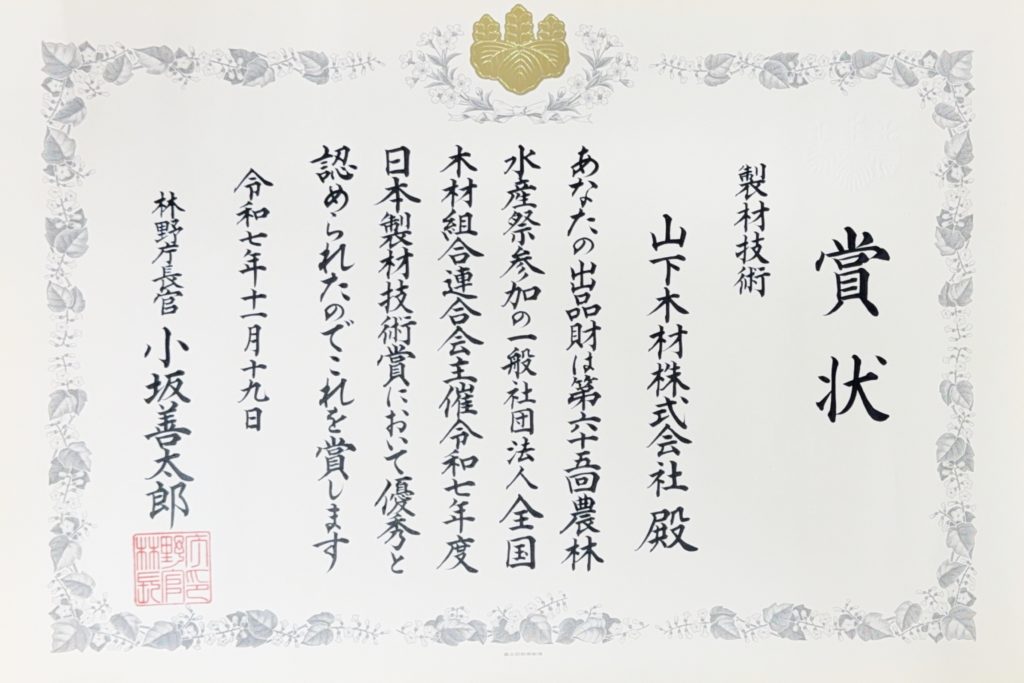 賞状
製材技術
山下木材株式会社 殿
あなたの出品財は第六十五回農林
水産祭参加の一般社団法人全国
木材組合連合会主催令和七年度
日本製材技術賞において優秀と
認められたのでこれを賞します
令和七年十一月十九日
林野庁長官 小坂善太郎